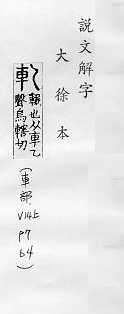 說文解字
大徐本
軋
也从車乙
聲烏轄切
(車部
V14上
P7
64)